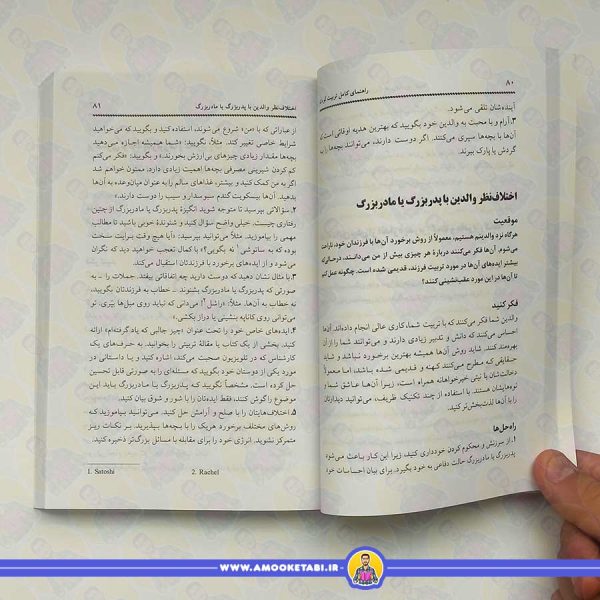 ۸۰
راهنمای کامل تربیت
آینده‌شان تلقی می‌شود.
۳. آرام و با محبت به والدین خود بگویید که بهترین هدیه اوقاتی است که
آن‌ها با بچه‌ها سپری می‌کنند. اگر دوست دارند، می‌توانند بچه‌ها را به
گردش یا پارک ببرند.
اختلاف‌نظر والدین با پدربزرگ یا مادربزرگ
موقعیت
هرگاه نزد والدینم هستیم، معمولاً از روش برخورد آن‌ها با فرزندان خود، ناراحت
می‌شوم. آن‌ها فکر می‌کنند درباره هر چیزی بیش از من می‌دانند، درحالی‌که
بیشتر ایده‌های آن‌ها در مورد تربیت فرزند، قدیمی شده است. چگونه عمل کنم
تا آن‌ها در این مورد عقب‌نشینی کنند؟
فکر کنید
والدین شما فکر می‌کنند که با تربیت شما، کاری عالی انجام داده‌اند. آن‌ها
احساس می‌کنند که دانش و تدبیر زیادی دارند و می‌توانند شما را از آن
بهره‌مند کنند. شاید روش آن‌ها همیشه بهترین برخورد نباشد و شاید
حقایقی که مطرح می‌کنند کهنه و قدیمی باشد، اما معمولاً
دخالت‌شان با نیتی خیرخواهانه همراه است، زیرا آن‌ها عاشق شما و
نوه‌هایشان هستند. با استفاده از چند تکنیک ظریف، می‌توانید دیدارتان
را با آن‌ها لذت‌بخش‌تر کنید.
راه‌حل‌ها
۱. از سرزنش و محکوم کردن خودداری کنید، زیرا این کار باعث می‌شود
پدربزرگ یا مادربزرگ حالت دفاعی به خود بگیرد. برای بیان احساسات خود
اختلاف‌نظر والدین با پدربزرگ یا مادربزرگ
۸۱
از عباراتی که با «من» شروع می‌شوند، استفاده کنید و بگویید که می‌خواهید
شرایط خاصی تغییر کند. مثلاً، نگویید: «شما همیشه اجازه می‌دهید
بچه‌ها مقدار زیادی چیزهای بی‌ارزش بخورند.» و بگویید: «فکر می‌کنم
کم کردن شیرینی مصرفی بچه‌ها اهمیت زیادی دارد. ممنون خواهم شد
اگر به من کمک کنید و بیشتر، غذاهای سالم را به عنوان میان‌وعده به آن‌ها
بدهید. آن‌ها بیسکویت گندم سبوس‌دار و سیب را دوست دارند.»
۲. سؤالاتی بپرسید تا متوجه شوید انگیزهٔ پدربزرگ یا مادربزرگ از چنین
رفتاری چیست. واضح سؤال کنید و شنوندهٔ خوبی باشید تا مطالب
مهمی را بیاموزید. مثلاً می‌توانید بپرسید: «آیا هیچ وقت برایت سخت
بوده که به ساتوشی۱ نه بگویی؟» با کمال تعجب خواهید دید که نگران
می‌شود و از ایده‌های برخورد با فرزندتان استقبال می‌کند.
۳. با مثال نشان دهید که دوست دارید چه اتفاقاتی بیفتد. جملات را ـ به
صورتی که پدربزرگ یا مادربزرگ بشنوند ـ خطاب به فرزندتان بگویید،
نه خطاب به آن‌ها. مثلاً: «راشل۲! می‌دانی که نباید روی مبل‌ها بپری. تو
می‌توانی روی کاناپه بنشینی یا دراز بکشی.»
۴. ایده‌های خاص خود را تحت عنوان «چیز جالبی که یاد گرفته‌ام» ارائه
کنید. بخشی از یک کتاب یا مقالهٔ تربیتی را بخوانید. به حرف‌های یک
کارشناس که در تلویزیون صحبت می‌کند، اشاره کنید و یا داستانی در
مورد یکی از دوستان خود بگویید که مسئله‌ای را به صورتی قابل تحسین
حل کرده است. مشخصاً نگویید که پدربزرگ یا مادربزرگ باید این
موضوع را گوش کنند، فقط ایده‌تان را با شور و شوق بیان کنید.
۵. اختلاف‌هایتان را با صلح و آرامش حل کنید. می‌توانید بیاموزید که
روش‌های مختلف برخورد هریک را با بچه‌ها بپذیرید. بر نکات ریز
متمرکز نشوید. انرژی خود را برای مقابله با مسائل بزرگ‌تر ذخیره کنید.
1. Satoshi 2. Rachel
WWW.AMOOKETABI.IR